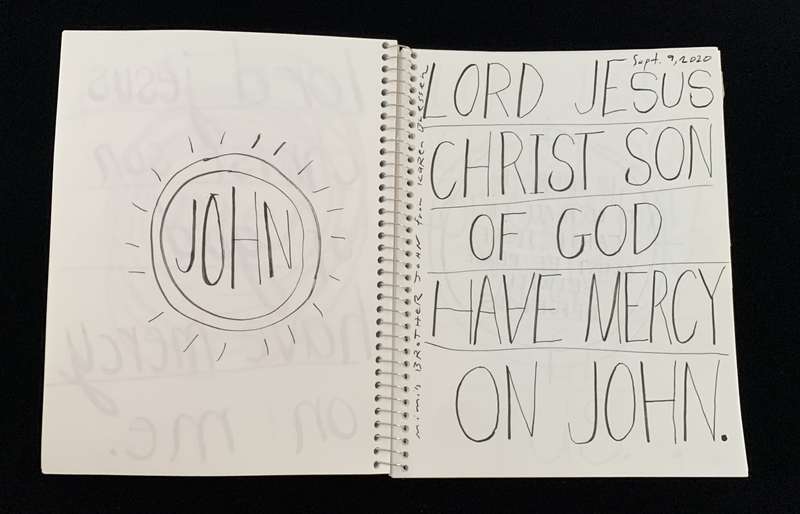 JOHN
Sept. 9, 2020
LORD JESUS
CHRIST SON
OF GOD
HAVE MERCY
ON JOHN.
mimi's BROTHER JOHN from KAREN Blessen